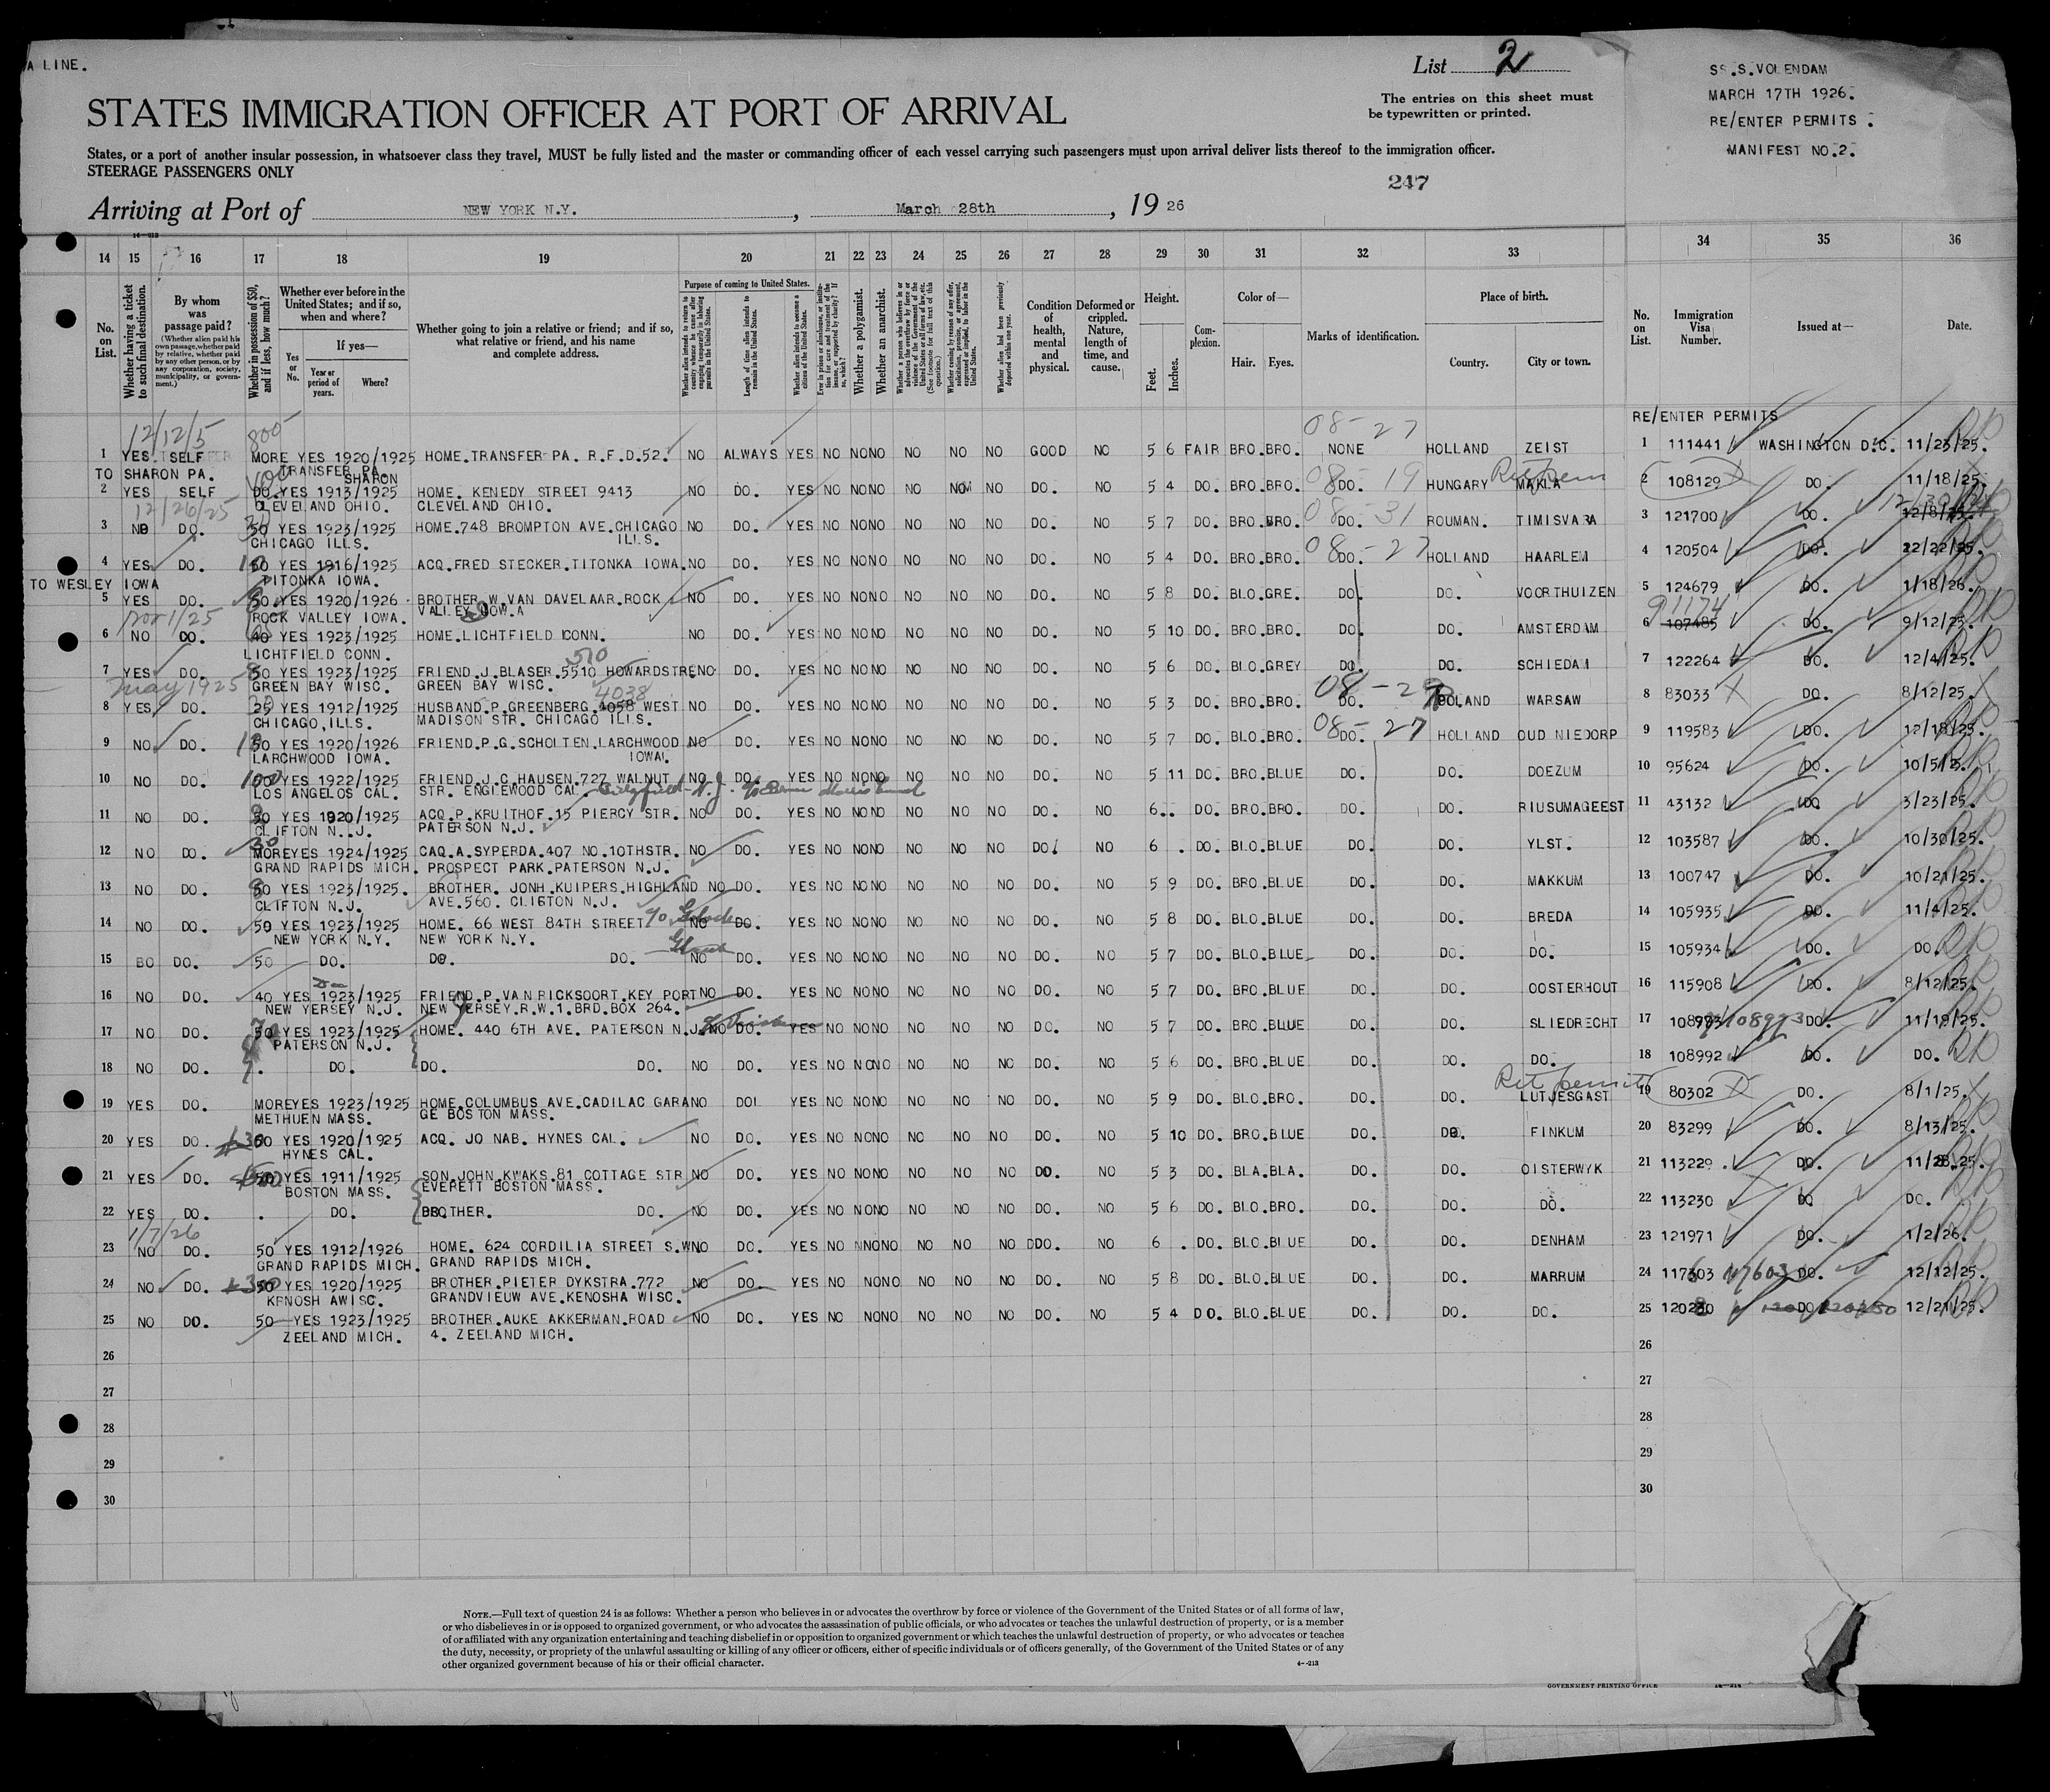 A LINE.
List 2
SS.S.VOLENDAM
MARCH 17TH 1926.
RE/ENTER PERMITS .
MANIFEST NO.2.
STATES IMMIGRATION OFFICER AT PORT OF ARRIVAL
The entries on this sheet must
be typewritten or printed.
States, or a port of another insular possession, in whatsoever class they travel, MUST be fully listed and the master or commanding officer of each vessel carrying such passengers must upon arrival deliver lists thereof to the immigration officer.
STEERAGE PASSENGERS ONLY
247
Arriving at Port of NEW YORK N.Y. , March 28th , 19 26
14 15 16 17 18 19 20 21 22 23 24 25 26 27 28 29 30 31 32 33 34 35 36
No. on List.
Whether having a ticket to such final destination.
By whom was passage paid?
(Whether alien paid his own passage, whether paid by relative, whether paid by any other person, or by any corporation, society, municipality, or government.)
Whether in possession of $50, and if less, how much?
Whether ever before in the United States; and if so, when and where?
If yes—
Yes or No.
Year or period of years.
Where?
Whether going to join a relative or friend; and if so, what relative or friend, and his name and complete address.
Purpose of coming to United States.
Length of time alien intends to remain in the United States.
Whether alien intends to become a citizen of the United States.
Whether a polygamist.
Whether an anarchist.
Condition of health, mental and physical.
Deformed or crippled. Nature, length of time, and cause.
Height.
Feet.
Inches.
Complexion.
Color of—
Hair.
Eyes.
Marks of identification.
Place of birth.
Country.
City or town.
No. on List.
Immigration Visa Number.
Issued at—
Date.
RE/ENTER PERMITS
12/12/5 800 08-27
1 YES. SELF MORE YES 1920/1925 HOME.TRANSFER PA. R.F.D.52. NO ALWAYS YES NO NO NO NO NO NO GOOD NO 5 6 FAIR BRO.BRO. NONE HOLLAND ZEIST 1 111441 WASHINGTON D.C. 11/23/25.
TO SHARON PA. TRANSFER PA. SHARON
2 YES SELF DO.YES 1913/1925 HOME. KENEDY STREET 9413 NO DO. YES NO NO NO NO NO NO DO. NO 5 4 DO. BRO.BRO. DO. 08-19 HUNGARY MAKLA 2 108129 DO. 11/18/25.
12/26/25 CLEVELAND OHIO. CLEVELAND OHIO.
3 NO DO. 50 YES 1923/1925 HOME.748 BROMPTON AVE.CHICAGO NO DO. YES NO NO NO NO NO NO DO. NO 5 7 DO. BRO.BRO. DO. 08-31 ROUMAN. TIMISVARA 3 121700 DO. 12/8/25. 12/30/25
CHICAGO ILLS. ILLS.
4 YES DO. 50 YES 1916/1925 ACQ.FRED STECKER.TITONKA IOWA. NO DO. YES NO NO NO NO NO NO DO. NO 5 4 DO. BRO.BRO. DO. 08-27 HOLLAND HAARLEM 4 120504 DO. 12/22/25.
TO WESLEY IOWA TITONKA IOWA.
5 YES DO. 50.YES 1920/1926 BROTHER.W.VAN DAVELAAR.ROCK NO DO. YES NO NO NO NO NO NO DO. NO 5 8 DO. BLO.GRE. DO. DO. VOORTHUIZEN 5 124679 DO. 1/18/26.
Nov 1/25 ROCK VALLEY IOWA. VALLEY IOW.A 91174
6 NO DO. 40 YES 1923/1925 HOME.LICHTFIELD CONN. NO DO. YES NO NO NO NO NO NO DO. NO 5 10 DO. BRO.BRO. DO. DO. AMSTERDAM 6 107485 DO. 9/12/25.
LICHTFIELD CONN. 510
7 YES DO. 50 YES 1923/1925 FRIEND.J.BLASER.5510 HOWARDSTRE NO DO. YES NO NO NO NO NO NO DO. NO 5 6 DO. BLO.GREY DO. DO. SCHIEDAM 7 122264 DO. 12/4/25.
May 1925 GREEN BAY WISC. GREEN BAY WISC. 4038
8 YES DO. 25 YES 1912/1925 HUSBAND.P.GREENBERG.4058 WEST NO DO. YES NO NO NO NO NO NO DO. NO 5 3 DO. BRO.BRO. DO. 08-29 POLAND WARSAW 8 83033 DO. 8/12/25.
CHICAGO,ILLS. MADISON STR. CHICAGO ILLS.
9 NO DO. 50 YES 1920/1926 FRIEND.P.G.SCHOLTEN.LARCHWOOD NO DO. YES NO NO NO NO NO NO DO. NO 5 7 DO. BLO.BRO. DO. 08-27 HOLLAND OUD NIEDORP 9 119583 DO. 12/18/25.
LARCHWOOD IOWA. IOWA.
10 NO DO. YES 1922/1925 FRIEND.J.C.HAUSEN.727 WALNUT NO DO. YES NO NO NO NO NO NO DO. NO 5 11 DO. BRO.BLUE DO. DO. DOEZUM 10 95624 DO. 10/5/25.
LOS ANGELOS CAL. STR. ENGLEWOOD CAL.
11 NO DO. 50 YES 1920/1925 ACQ.P.KRUITHOF.15 PIERCY STR. NO DO. YES NO NO NO NO NO NO DO. NO 6.. DO. BRO.BRO. DO. DO. RIUSUMAGEEST 11 43132 DO 3/23/25.
CLIFTON N..J. PATERSON N.J.
12 NO DO. MOREYES 1924/1925 CAQ.A.SYPERDA.407 NO.10THSTR. NO DO. YES NO NO NO NO NO NO DO. NO 6 . DO. BLO.BLUE DO. DO. YLST. 12 103587 DO. 10/30/25.
GRAND RAPIDS MICH. PROSPECT PARK.PATERSON N.J.
13 NO DO. 50 YES 1923/1925. BROTHER. JONH.KUIPERS.HIGHLAND NO DO. YES NO NO NO NO NO NO DO. NO 5 9 DO. BRO.BLUE DO. DO. MAKKUM 13 100747 DO. 10/21/25.
CLIFTON N.J. AVE.560. CLIGTON N.J.
14 NO DO. 50 YES 1923/1925 HOME. 66 WEST 84TH STREET NO DO. YES NO NO NO NO NO NO DO. NO 5 8 DO. BLO.BLUE DO. DO. BREDA 14 105935 DO. 11/4/25.
NEW YORK N.Y. NEW YORK N.Y.
15 BO DO. 50 DO. DO. DO. NO DO. YES NO NO NO NO NO NO DO. NO 5 7 DO. BLO.BLUE DO. DO. DO. 15 105934 DO. DO.
16 NO DO. 40 YES 1923/1925 FRIEND.P.VAN RICKSOORT.KEY PORT NO DO. YES NO NO NO NO NO NO DO. NO 5 7 DO. BRO.BLUE DO. DO. OOSTERHOUT 16 115908 DO. 8/12/25.
NEW YERSEY N.J. NEW JERSEY.R.W.1.BRD.BOX 264.
17 NO DO. 50 YES 1923/1925 HOME. 440 6TH AVE. PATERSON N.J. NO DO. YES NO NO NO NO NO NO DO. NO 5 7 DO. BRO.BLUE DO. DO. SLIEDRECHT 17 108993 DO. 11/19/25.
PATERSON N.J.
18 NO DO. . DO. DO. DO. NO DO. YES NO NO NO NO NO NO DO. NO 5 6 DO. BRO.BLUE DO. DO. DO. 18 108992 DO. DO.
Ret permit
19 YES DO. MOREYES 1923/1925 HOME.COLUMBUS AVE.CADILAC GARA NO DOL YES NO NO NO NO NO NO DO. NO 5 9 DO. BLO.BRO. DO. DO. LUTJESGAST 19 80302 DO. 8/1/25.
METHUEN MASS. GE BOSTON MASS.
20 YES DO. YES 1920/1925 ACQ. JO NAB. HYNES CAL. NO DO. YES NO NO NO NO NO NO DO. NO 5 10 DO. BRO.BLUE DO. DO. FINKUM 20 83299 DO. 8/13/25.
HYNES CAL.
21 YES DO. YES 1911/1925 SON.JOHN.KWAKS.81 COTTAGE STR NO DO. YES NO NO NO NO NO NO DO. NO 5 3 DO. BLA.BLA. DO. DO. OISTERWYK 21 113229 . DO. 11/28.25.
BOSTON MASS. EVERETT BOSTON MASS.
22 YES DO. . DO. BROTHER. DO. NO DO. YES NO NO NO NO NO NO DO. NO 5 6 DO. BLO.BRO. DO. DO. DO. 22 113230 DO DO.
1/7/26
23 NO DO. 50 YES 1912/1926 HOME. 624 CORDILIA STREET S.W NO DO. YES NO NNONO NO NO NO DDO. NO 6 . DO. BLO.BLUE DO. DO. DENHAM 23 121971 DO. 1/2/26.
GRAND RAPIDS MICH. GRAND RAPIDS MICH.
24 NO DO. 50 YES 1920/1925 BROTHER.PIETER DYKSTRA.772 NO DO. YES NO NONO NO NO NO DO. NO 5 8 DO. BLO.BLUE DO. DO. MARRUM 24 117603 DO. 12/12/25.
KENOSH AWISC. GRANDVIEUW AVE.KENOSHA WISC.
25 NO DO. 50 YES 1923/1925 BROTHER.AUKE AKKERMAN.ROAD NO DO. YES NO NONO NO NO NO DO. NO 5 4 DO. BLO.BLUE DO. DO. DO. 25 DO 12/21/25.
ZEELAND MICH. 4. ZEELAND MICH.
26 26
27 27
28 28
29 29
30 30
NOTE.—Full text of question 24 is as follows: Whether a person who believes in or advocates the overthrow by force or violence of the Government of the United States or of all forms of law,
or who disbelieves in or is opposed to organized government, or who advocates the assassination of public officials, or who advocates or teaches the unlawful destruction of property, or is a member
of or affiliated with any organization entertaining and teaching disbelief in or opposition to organized government or which teaches the unlawful destruction of property, or who advocates or teaches
the duty, necessity, or propriety of the unlawful assaulting or killing of any officer or officers, either of specific individuals or of officers generally, of the Government of the United States or of any
other organized government because of his or their official character.
GOVERNMENT PRINTING OFFICE